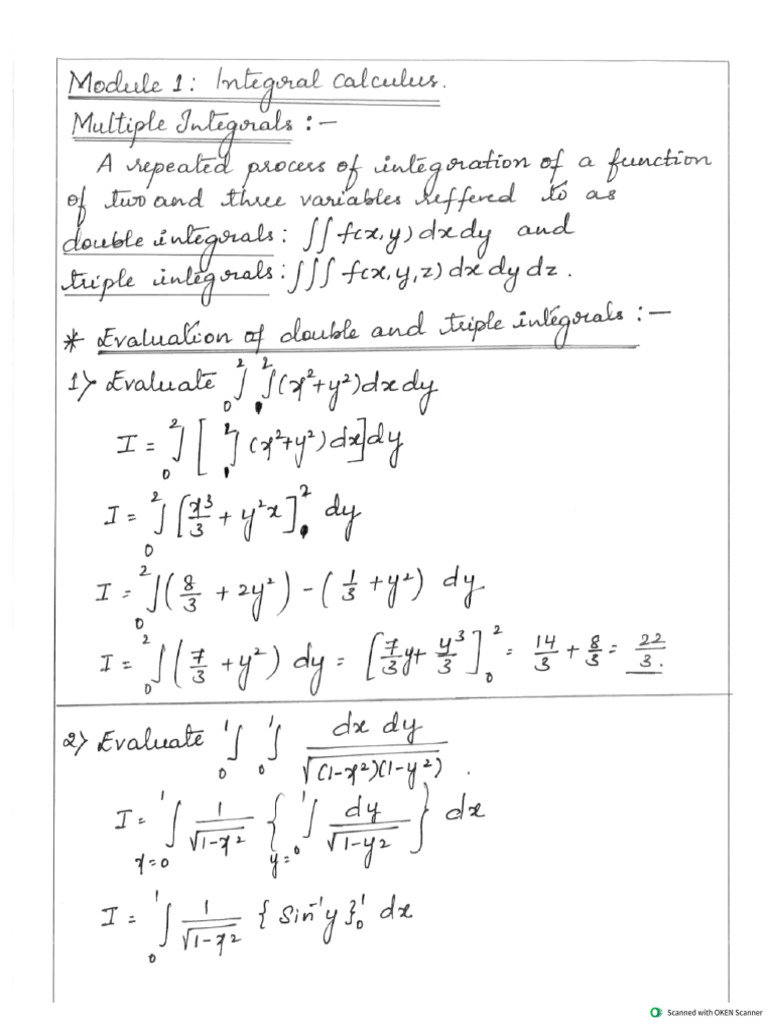 Module 1: Integral Calculus.
Multiple Integrals :-
A repeated process of integration of a function
of two and three variables reffered to as
double integrals: ∫∫ f(x,y) dx dy and
triple integrals: ∫∫∫ f(x,y,z) dx dy dz.
* Evaluation of double and triple integrals :-
1) Evaluate ∫₀² ∫₁² (x²+y²) dx dy
I = ∫₀² [ ∫₁² (x²+y²) dx ] dy
I = ∫₀² [x³/3 + y²x]₁² dy
I = ∫₀² (8/3 + 2y²) - (1/3 + y²) dy
I = ∫₀² (7/3 + y²) dy = [7/3 y + y³/3]₀² = 14/3 + 8/3 = 22/3.
2) Evaluate ∫₀¹ ∫₀¹ dx dy / √(1-x²)(1-y²) .
I = ∫ₓ₌₀¹ 1/√1-x² { ∫y=0¹ dy/√1-y² } dx
I = ∫₀¹ 1/√1-x² { Sin⁻¹y }₀¹ dx
Scanned with OKEN Scanner